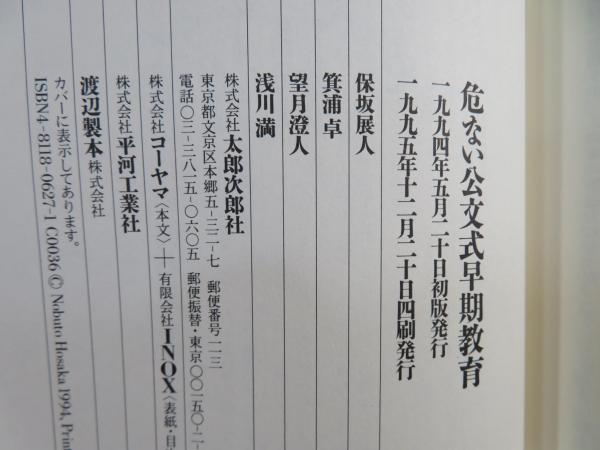 危ない公文式早期教育
一九九四年五月二十日初版発行
一九九五年十二月二十日四刷発行
保坂展人
箕浦卓
望月澄人
浅川満
株式会社太郎次郎社
東京都文京区本郷五-三二-七 郵便番号一一三
電話〇三-三八一五-〇六〇五 郵便振替・東京〇〇一五〇-二-
株式会社コーヤマ〈本文〉+有限会社INOX〈表紙・目
株式会社平河工業社
渡辺製本株式会社
カバーに表示してあります。
ISBN4-8118-0627-1 C0036 © Nobuto Hosaka 1994, Print